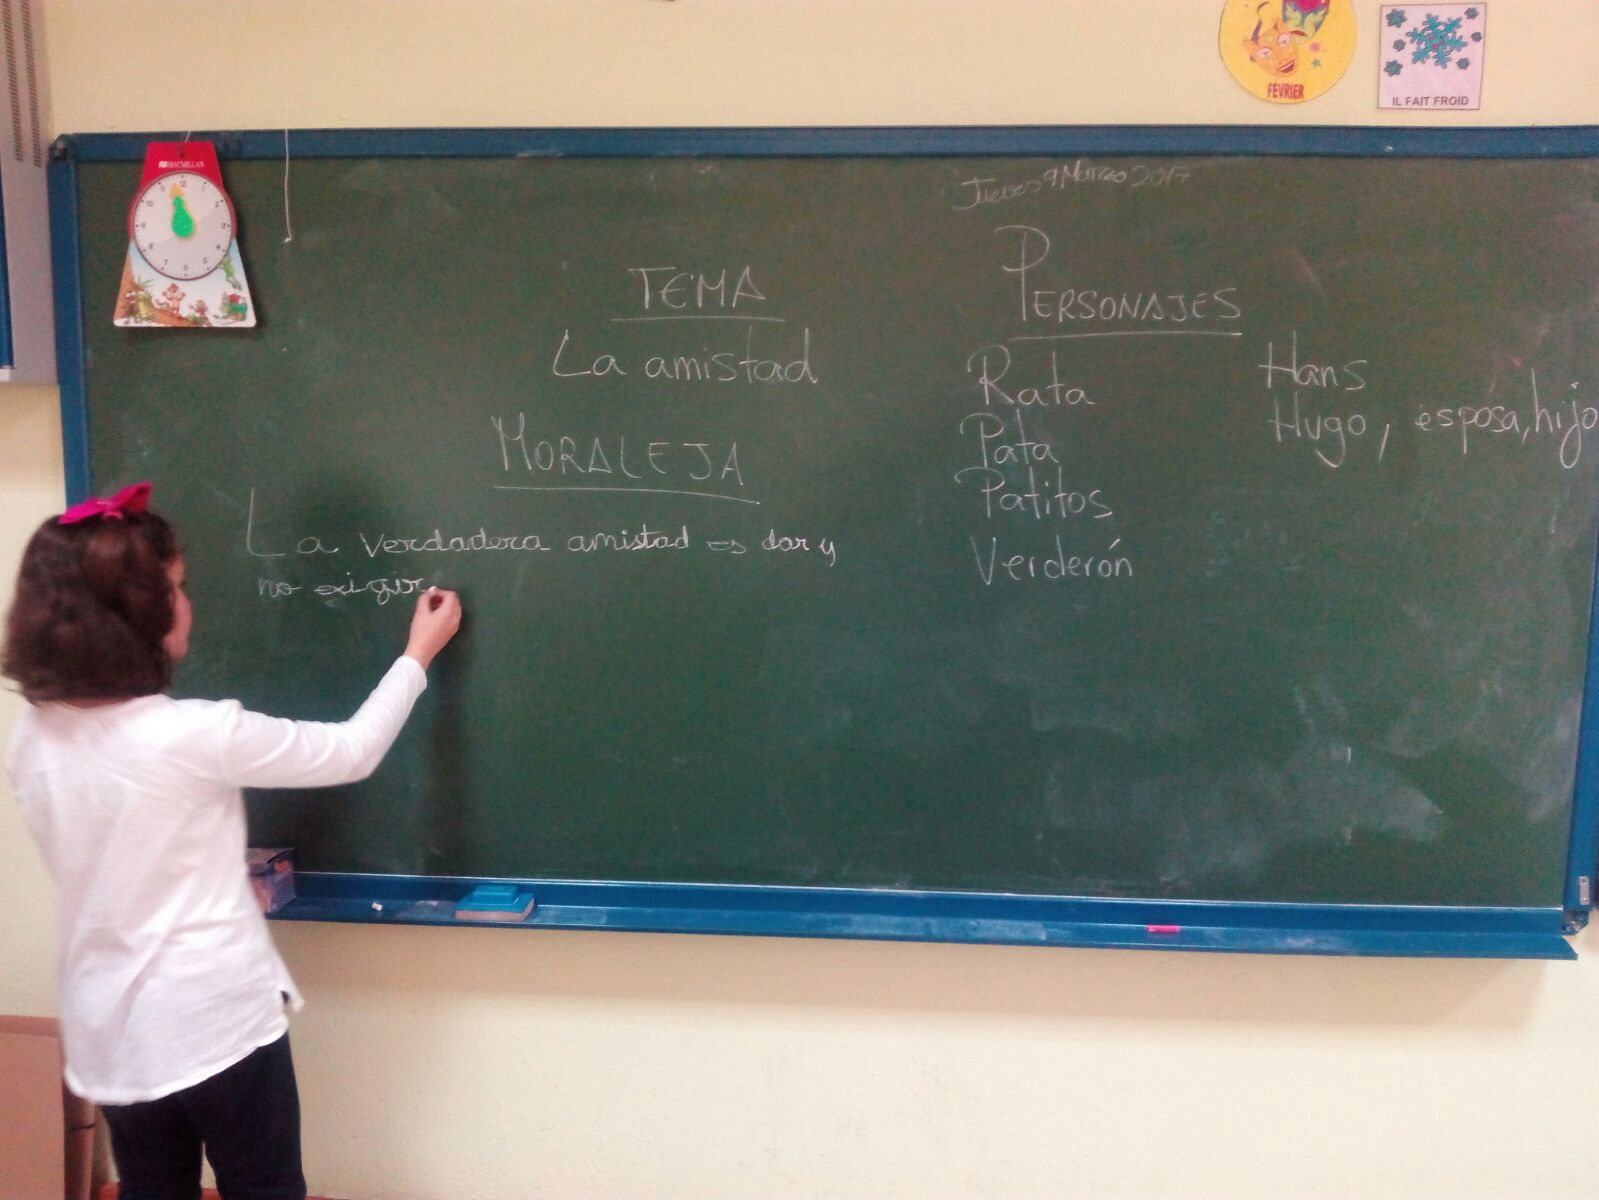 FÉVRIER
IL FAIT FROID
MACMILLAN
Jueves 9 Marzo 2017
TEMA
La amistad
MORALEJA
La verdadera amistad es dar y
no exigir
PERSONAJES
Rata
Pata
Patitos
Verderón
Hans
Hugo, esposa, hijo